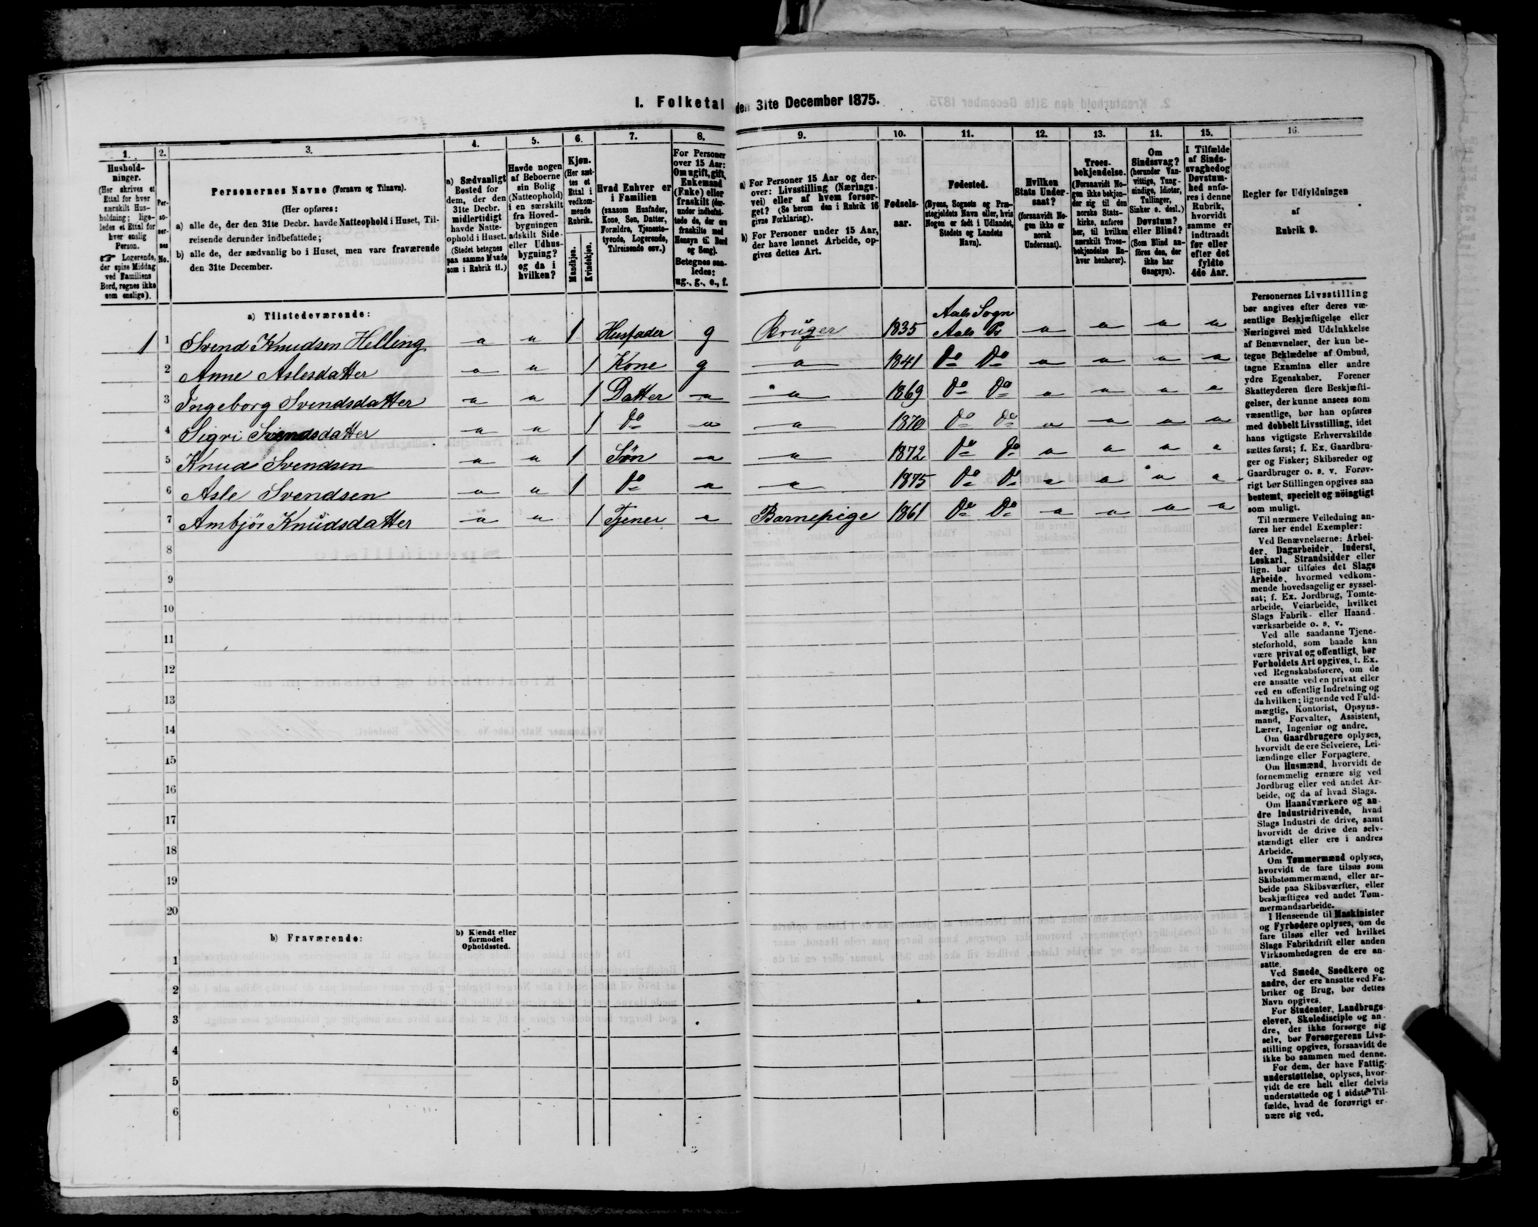 1. Folketal den 31te December 1875.
1. 2. 3. 4. 5. 6. 7. 8. 9. 10. 11. 12. 13. 14. 15. 16.
Hushold-
ninger.
(Her skrives et
Ettal for hver
særskilt Hus-
holdning; lige-
ledes et Ettal for
hver enlig
Person.
☞ Logerende,
der spise Middag
ved Familiens
Bord, regnes ikke
som enslige).
Per-
so-
ner-
nes
No.
Personernes Navne (Fornavn og Tilnavn).
(Her opføres:
a) alle de, der den 31te Decbr. havde Natteophold i Huset, Til-
reisende derunder indbefattede;
b) alle de, der sædvanlig bo i Huset, men vare fraværende
den 31te December.
a) Sædvanligt
Bosted for
dem, der den
31te Decbr.
midlertidigt
havde Natte-
ophold i Huset.
(Stedet betegnes
paa samme Maade
som i Rubrik 11.)
Havde nogen
af Beboerne
sin Bolig
(Natteophold)
i en særskilt
fra Hoved-
bygningen
adskilt Side-
eller Udhus-
bygning?
og da i
hvilken?
Kjøn.
(Her sæt-
tes et
Ettal i
vedkom-
mende
Rubrik.
Mandkjøn.
Kvindekjøn.
Hvad Enhver er
i Familien
(saasom Husfader,
Kone, Søn, Datter,
Forældre, Tjeneste-
tyende, Logerende,
Tilreisende osv.)
For Personer
over 15 Aar:
Om ugift, gift,
Enkemand
(Enke) eller
fraskilt (der-
under indbefat-
tede de, der ere
fraskilte med
Hensyn til Bord
og Seng).
Betegnes saa-
ledes:
ug., g., e., f.
a) For Personer 15 Aar og der-
over: Livsstilling (Nærings-
vei) eller af hvem forsør-
get? (Se herom den i Rubrik 16
givne Forklaring).
b) For Personer under 15 Aar,
der have lønnet Arbeide, op-
gives dettes Art.
Fødsels-
aar.
Fødested.
(Byens, Sognets og Præ-
stegjeldets Navn eller, hvis
Nogen er født i Udlandet,
Stedets og Landets
Navn).
Hvilken
Stats Under-
saat?
(forsaavidt No-
gen ikke er
norsk
Undersaat).
Troes-
bekjendelse.
(Forsaavidt No-
gen ikke bekjen-
der sig til den
norske Stats-
kirke, anføres
her, til hvilken
særskilt Troes-
bekjendelse En-
hver henhører).
Om
Sindssvag?
(herunder Van-
vittige, Tung-
sindige, Idioter,
Tullinger,
Sinker o. desl.)
Døvstum?
eller Blind?
(Som Blind an-
føres den, der
ikke har
Gangsyn).
I Tilfælde
af Sinds-
svaghed og
Døvstum-
hed anfø-
res i denne
Rubrik,
hvorvidt
samme er
indtraadt
før eller
efter det
fyldte
4de Aar.
Regler for Udfyldningen
af
Rubrik 9.
a) Tilstedeværende:
1 1 Svend Knudsen Helling " " 1 Husfader g Bruger 1835 Aals Sogn Aals P. " " " "
2 Anne Aslesdatter " " 1 Kone g " 1841 do do " " " "
3 Ingeborg Svendsdatter " " 1 Datter " " 1869 do do " " " "
4 Sigri Svendsdatter " " 1 do " " 1870 do do " " " "
5 Knud Svendsen " " 1 Søn " " 1872 do do " " " "
6 Asle Svendsen " " 1 do " " 1875 do do " " " "
7 Ambjør Knudsdatter " " 1 Tjener " Barnepige 1861 do do " " " "
8
9
10
11
12
13
14
15
16
17
18
19
20
b) Fraværende:
b) Kjendt eller
formodet
Opholdssted.
1
2
3
4
5
6
Personernes Livsstilling
bør angives efter deres væ-
sentlige Beskjæftigelse eller
Næringsvei med Udelukkelse
af Benævnelser, der kun be-
tegne Beklædelse af Ombud,
tagne Examina eller andre
ydre Egenskaber. Forener
Skatteyderen flere Beskjæfti-
gelser, der kunne ansees som
væsentlige, bør han opføres
med dobbelt Livsstilling, idet
hans vigtigste Erhvervskilde
sættes først; f. Ex. Gaardbru-
ger og Fisker; Skibsreder og
Gaardbruger o. s. v. Forøv-
rigt bør Stillingen opgives saa
bestemt, specielt og nøiagtigt
som muligt.
Til nærmere Veiledning an-
føres her endel Exempler:
Ved Benævnelserne: Arbei-
der, Dagarbeider, Inderst,
Løskarl, Strandsidder eller
lign. bør tilføies det Slags
Arbeide, hvormed vedkom-
mende hovedsagelig er syssel-
sat; f. Ex. Jordbrug, Tomte-
arbeide, Veiarbeide, hvilket
Slags Fabrik- eller Haand-
værksarbeide o. s. v.
Ved alle saadanne Tjene-
steforhold, som baade kan
være privat og offentligt, bør
Forholdets Art opgives, f. Ex.
ved Regnskabsførere, om de
ere ansatte ved en privat eller
ved en offentlig Indretning og
da hvilken; lignende ved Fuld-
mægtig, Kontorist, Opsyns-
mand, Forvalter, Assistent,
Lærer, Ingeniør og andre.
Om Gaardbrugere oplyses,
hvorvidt de ere Selveiere, Lei-
lændinge eller Forpagtere.
Om Husmænd, hvorvidt de
fornemmelig ernære sig ved
Jordbrug eller ved andet Ar-
beide, og da af hvad Slags.
Om Haandværkere og an-
dre Industridrivende, hvad
Slags Industri de drive, samt
hvorvidt de drive den selv-
stændigt eller ere i andres
Arbeide.
Om Tømmermænd oplyses,
hvorvidt de fare tilsøs som
Skibstømmermænd, eller ar-
beide paa Skibsværfter, eller
beskjæftiges ved andet Tøm-
mermandsarbeide.
I Henseende til Maskinister
og Fyrbødere oplyses, om de
fare tilsøs eller ved hvilket
Slags Fabrikdrift eller anden
Virksomhedsgren de ere an-
satte.
Ved Smede, Snedkere og
andre, der ere ansatte ved Fa-
briker og Brug, bør dettes
Navn opgives.
For Studenter, Landbrugs-
elever, Skoledisciple og an-
dre, der ikke forsørge sig
selv, bør Forsørgerens Livs-
stilling opgives, forsaavidt de
ikke bo sammen med denne.
For dem, der have Fattig-
understøttelse, oplyses, hvor-
vidt de ere helt eller delvis
understøttede og i sidste Til-
fælde, hvad de forøvrigt er-
nære sig ved.